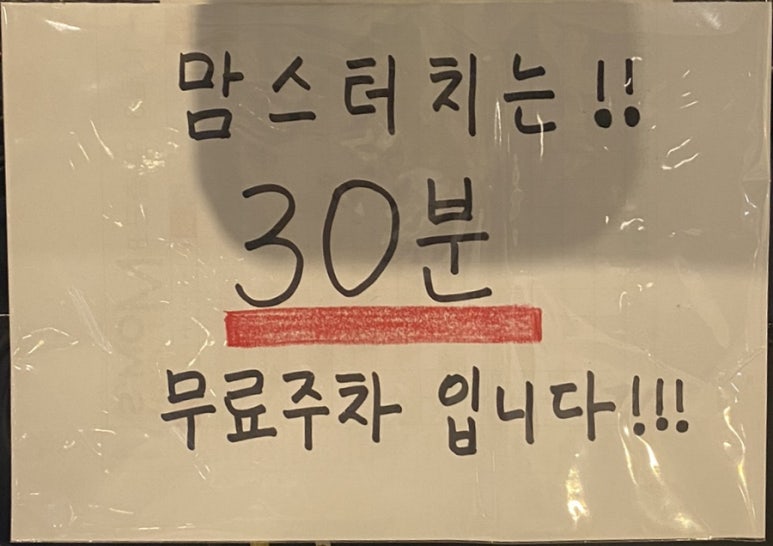 맘스터치는!!
30분
무료주차 입니다!!!